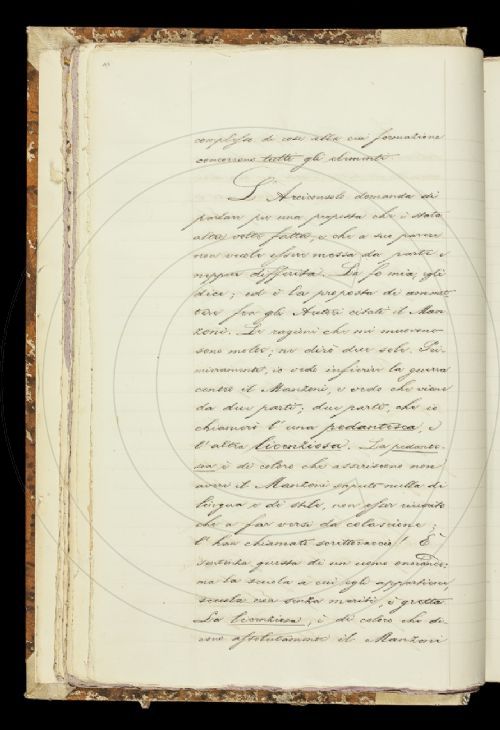 complessa di cose alla cui formazione
concorrono tutti gli elementi.
L'Arciconsolo domanda di
parlare per una proposta che è stata
altre volte fatta, e che a suo parere
non vuole essere messa da parte e
neppur differita. La fo mia, egli
dice; ed è la proposta di ammet
tere fra gli Autori citati il Man
zoni. Le ragioni che mi muovono
sono molte; ne dirò due sole. Pri
mieramente, io vedo inferire la guerra
contro il Manzoni, e vedo che viene
da due parti; due parti, che io
chiamerò l'una pedantesca, e
l'altra licenziosa. La pedante-
sca è di coloro che asseriscono non
avere il Manzoni saputo nulla di
lingua e di stile, non esser riuscito
che a far versi da colascione;
l'han chiamato scrittoraccio! È
sentenza questa di un uomo onorando;
ma la scuola a cui egli appartiene,
scuola non senza meriti, è gretta
La licenziosa, è di coloro che di-
cono assolutamente il Manzoni